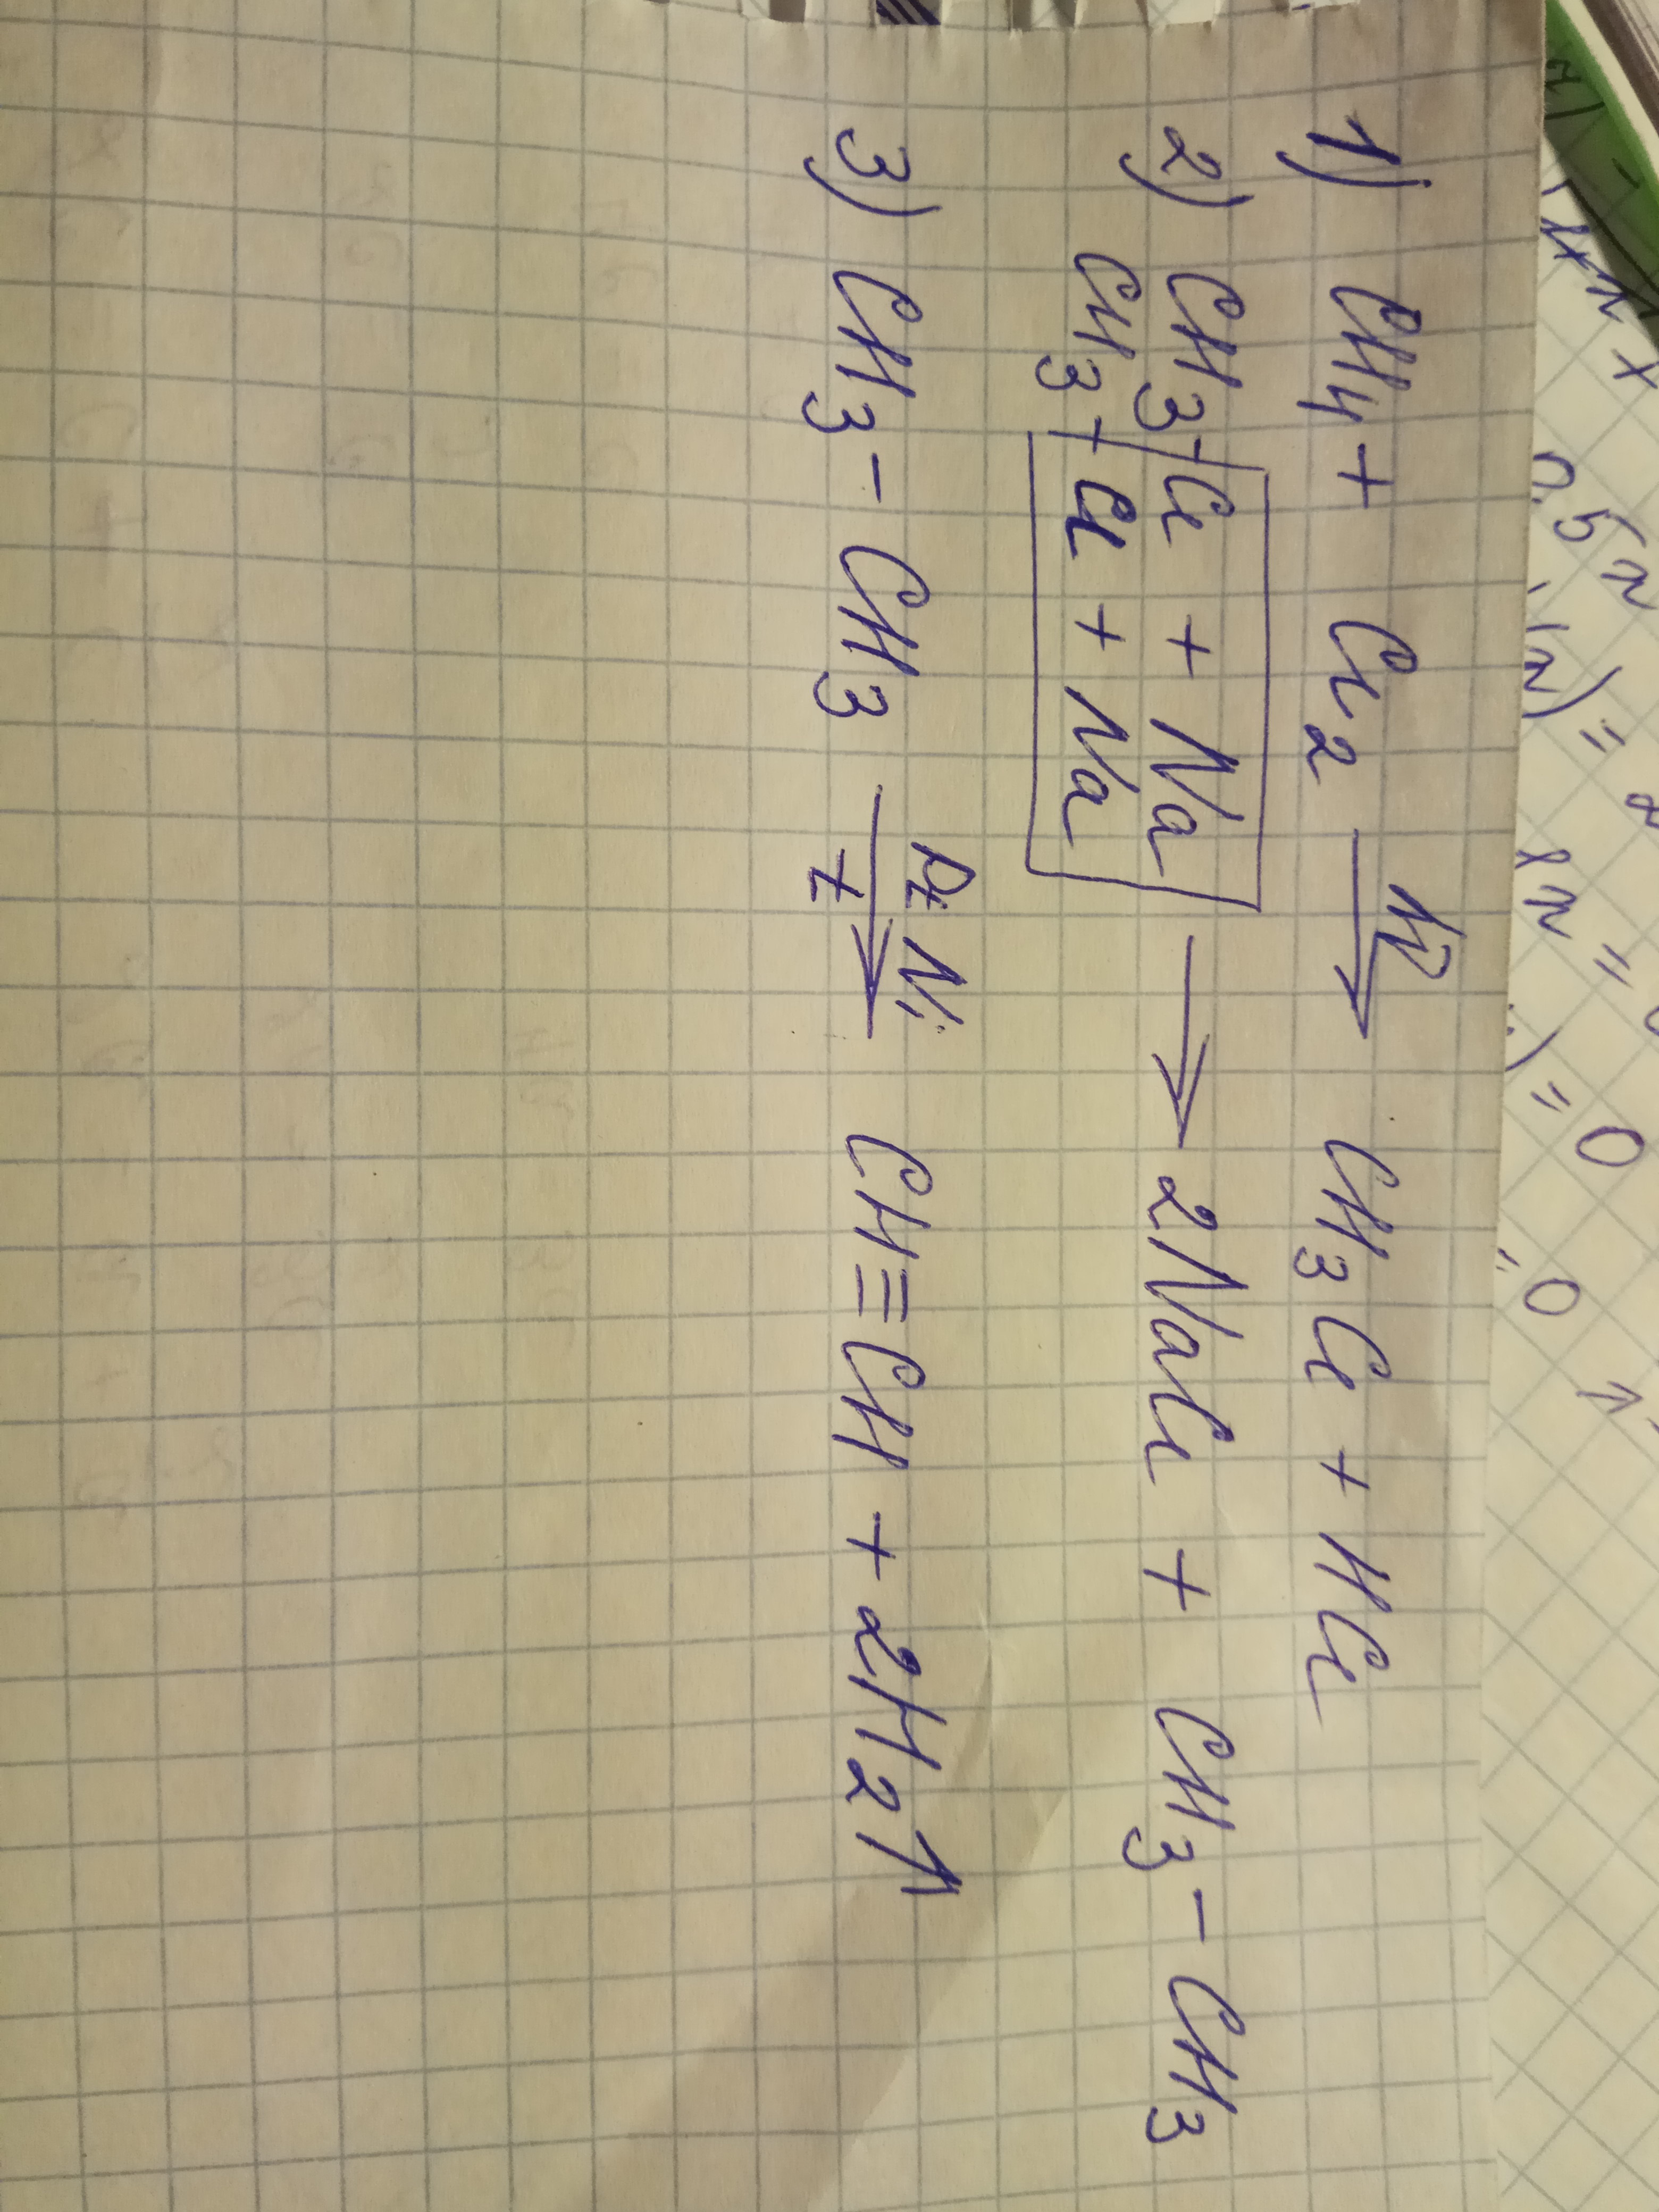 1) CH4 + Cl2 —hν→ CH3Cl + HCl
2) CH3 + Cl + Na
CH3 + Cl + Na → 2NaCl + CH3 - CH3
3) CH3 - CH3 —Pt Ni, t→ CH≡CH + 2H2↑